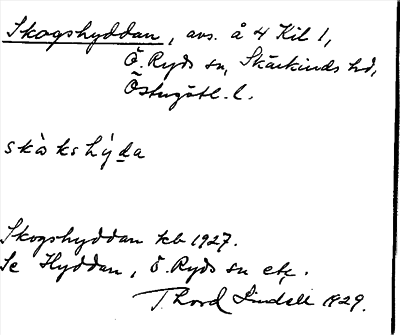 Skogshyddan, avs. å 4 Kil 1,
Ö. Ryds sn, Skärkinds hd,
Östergötl. l.
skòkshýda
Skogshyddan kb 1927.
Se Hyddan, Ö. Ryds sn etc.
Thord Lindell 1929.